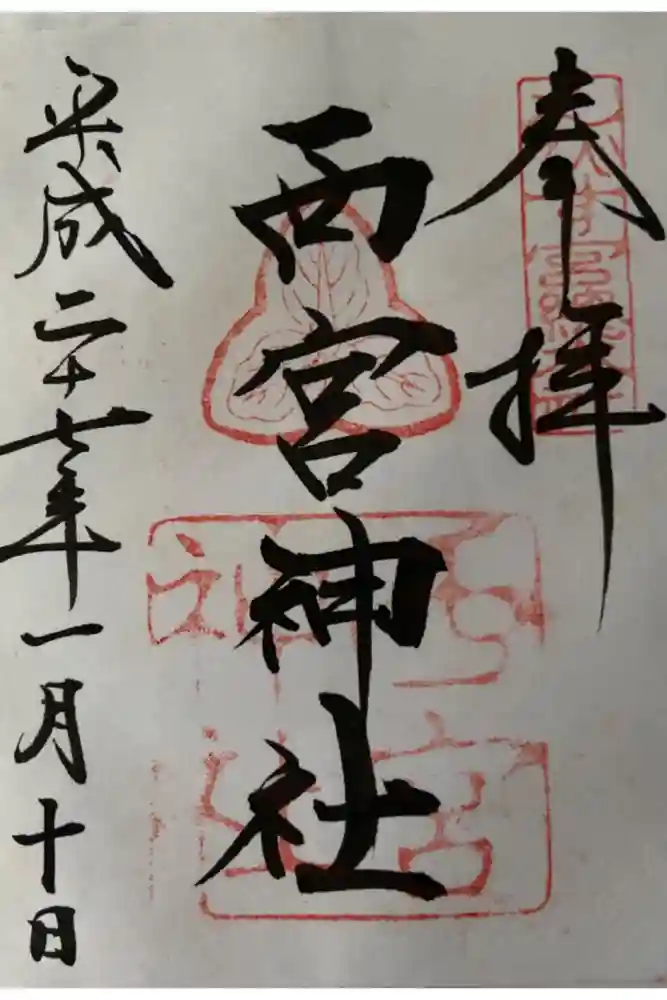 奉拝
西宮神社
平成二十七年一月十日
西宮神社